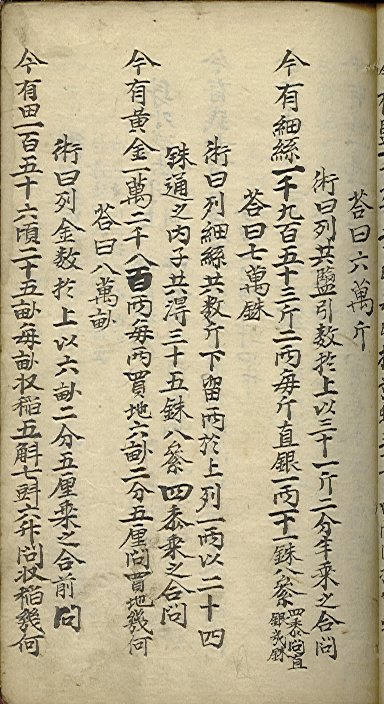 荅曰六萬斤
術曰列共鹽引數於上以三十一斤二分半乘之合問
今有細絲一千九百五十三斤二兩每斤直銀一兩十一銖八絫四黍問直銀幾銖
荅曰七萬銖
術曰列細絲共數斤下留兩於上列一兩以二十四
銖通之內子共得三十五銖八絫四黍乘之合問
今有黃金一萬二千八百兩每兩買地六畝二分五厘問買地幾何
荅曰八萬畝
術曰列金數於上以六畝二分五厘乘之合前問
今有田一百五十六頃二十五畝每畝收稻五斛七㪷六升問收稻幾何